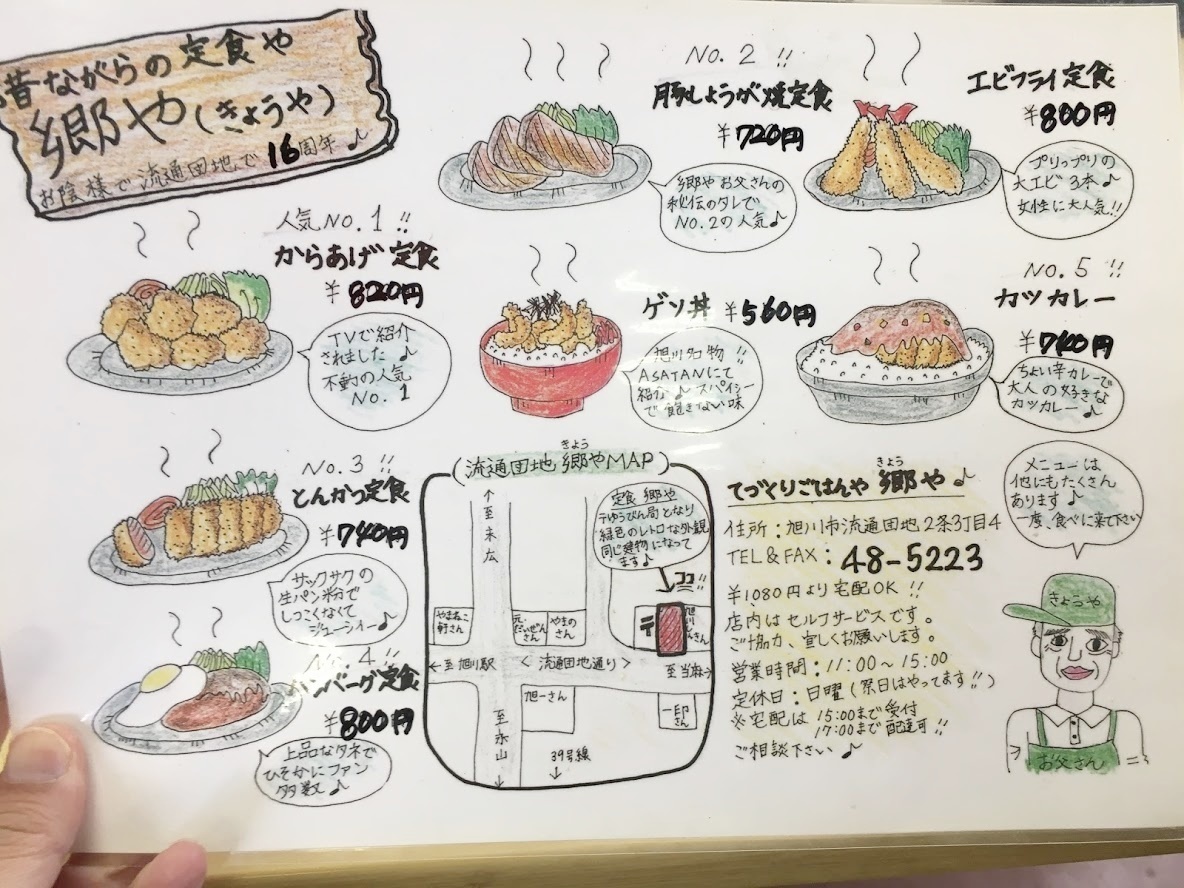 昔ながらの定食や
郷や(きょうや)
お陰様で流通団地で16周年♪
人気No.1!!
からあげ定食
¥820円
TVで紹介
されました♪
不動の人気
No.1
No.2!!
豚しょうが焼定食
¥720円
郷やお父さんの
秘伝のタレで
No.2の人気♪
エビフライ定食
¥800円
プリっプリの
大エビ3本♪
女性に大人気!!
ゲソ丼 ¥560円
旭川名物!!
ASATANにて
紹介♪スパイシー
で飽きない味
No.5!!
カツカレー
¥740円
ちょい辛カレーで
大人の好きな
カツカレー♪
No.3!!
とんかつ定食
¥740円
サックサクの
生パン粉で
しつこくなくて
ジューシィー♪
No.4!!
ハンバーグ定食
¥800円
上品なタネで
ひそかにファン
多数♪
きょう
(流通団地郷やMAP)
↑至末広
定食 郷や
〒ゆうびん局となり
緑色のレトロな外観
同じ建物になって
ます♪
ココ!!
やまねこ
軒さん
元、
だいぜん
さん
やまの
さん
〒
←至旭川駅
<流通団地通り>
至当麻→
旭一さん
一印
さん
至永山
↓
39号線
↓
きょう
てづくりごはんや 郷や♪
住所:旭川市流通団地2条3丁目4
TEL&FAX:48-5223
¥1080円より宅配OK!!
店内はセルフサービスです。
ご協力、宜しくお願いします。
営業時間:11:00~15:00
定休日:日曜(祭日はやってます!!)
※宅配は 15:00まで受付
17:00まで配達可!!
ご相談下さい♪
メニューは
他にもたくさん
あります♪
一度、食べに来て下さい
きょうや
お父さん